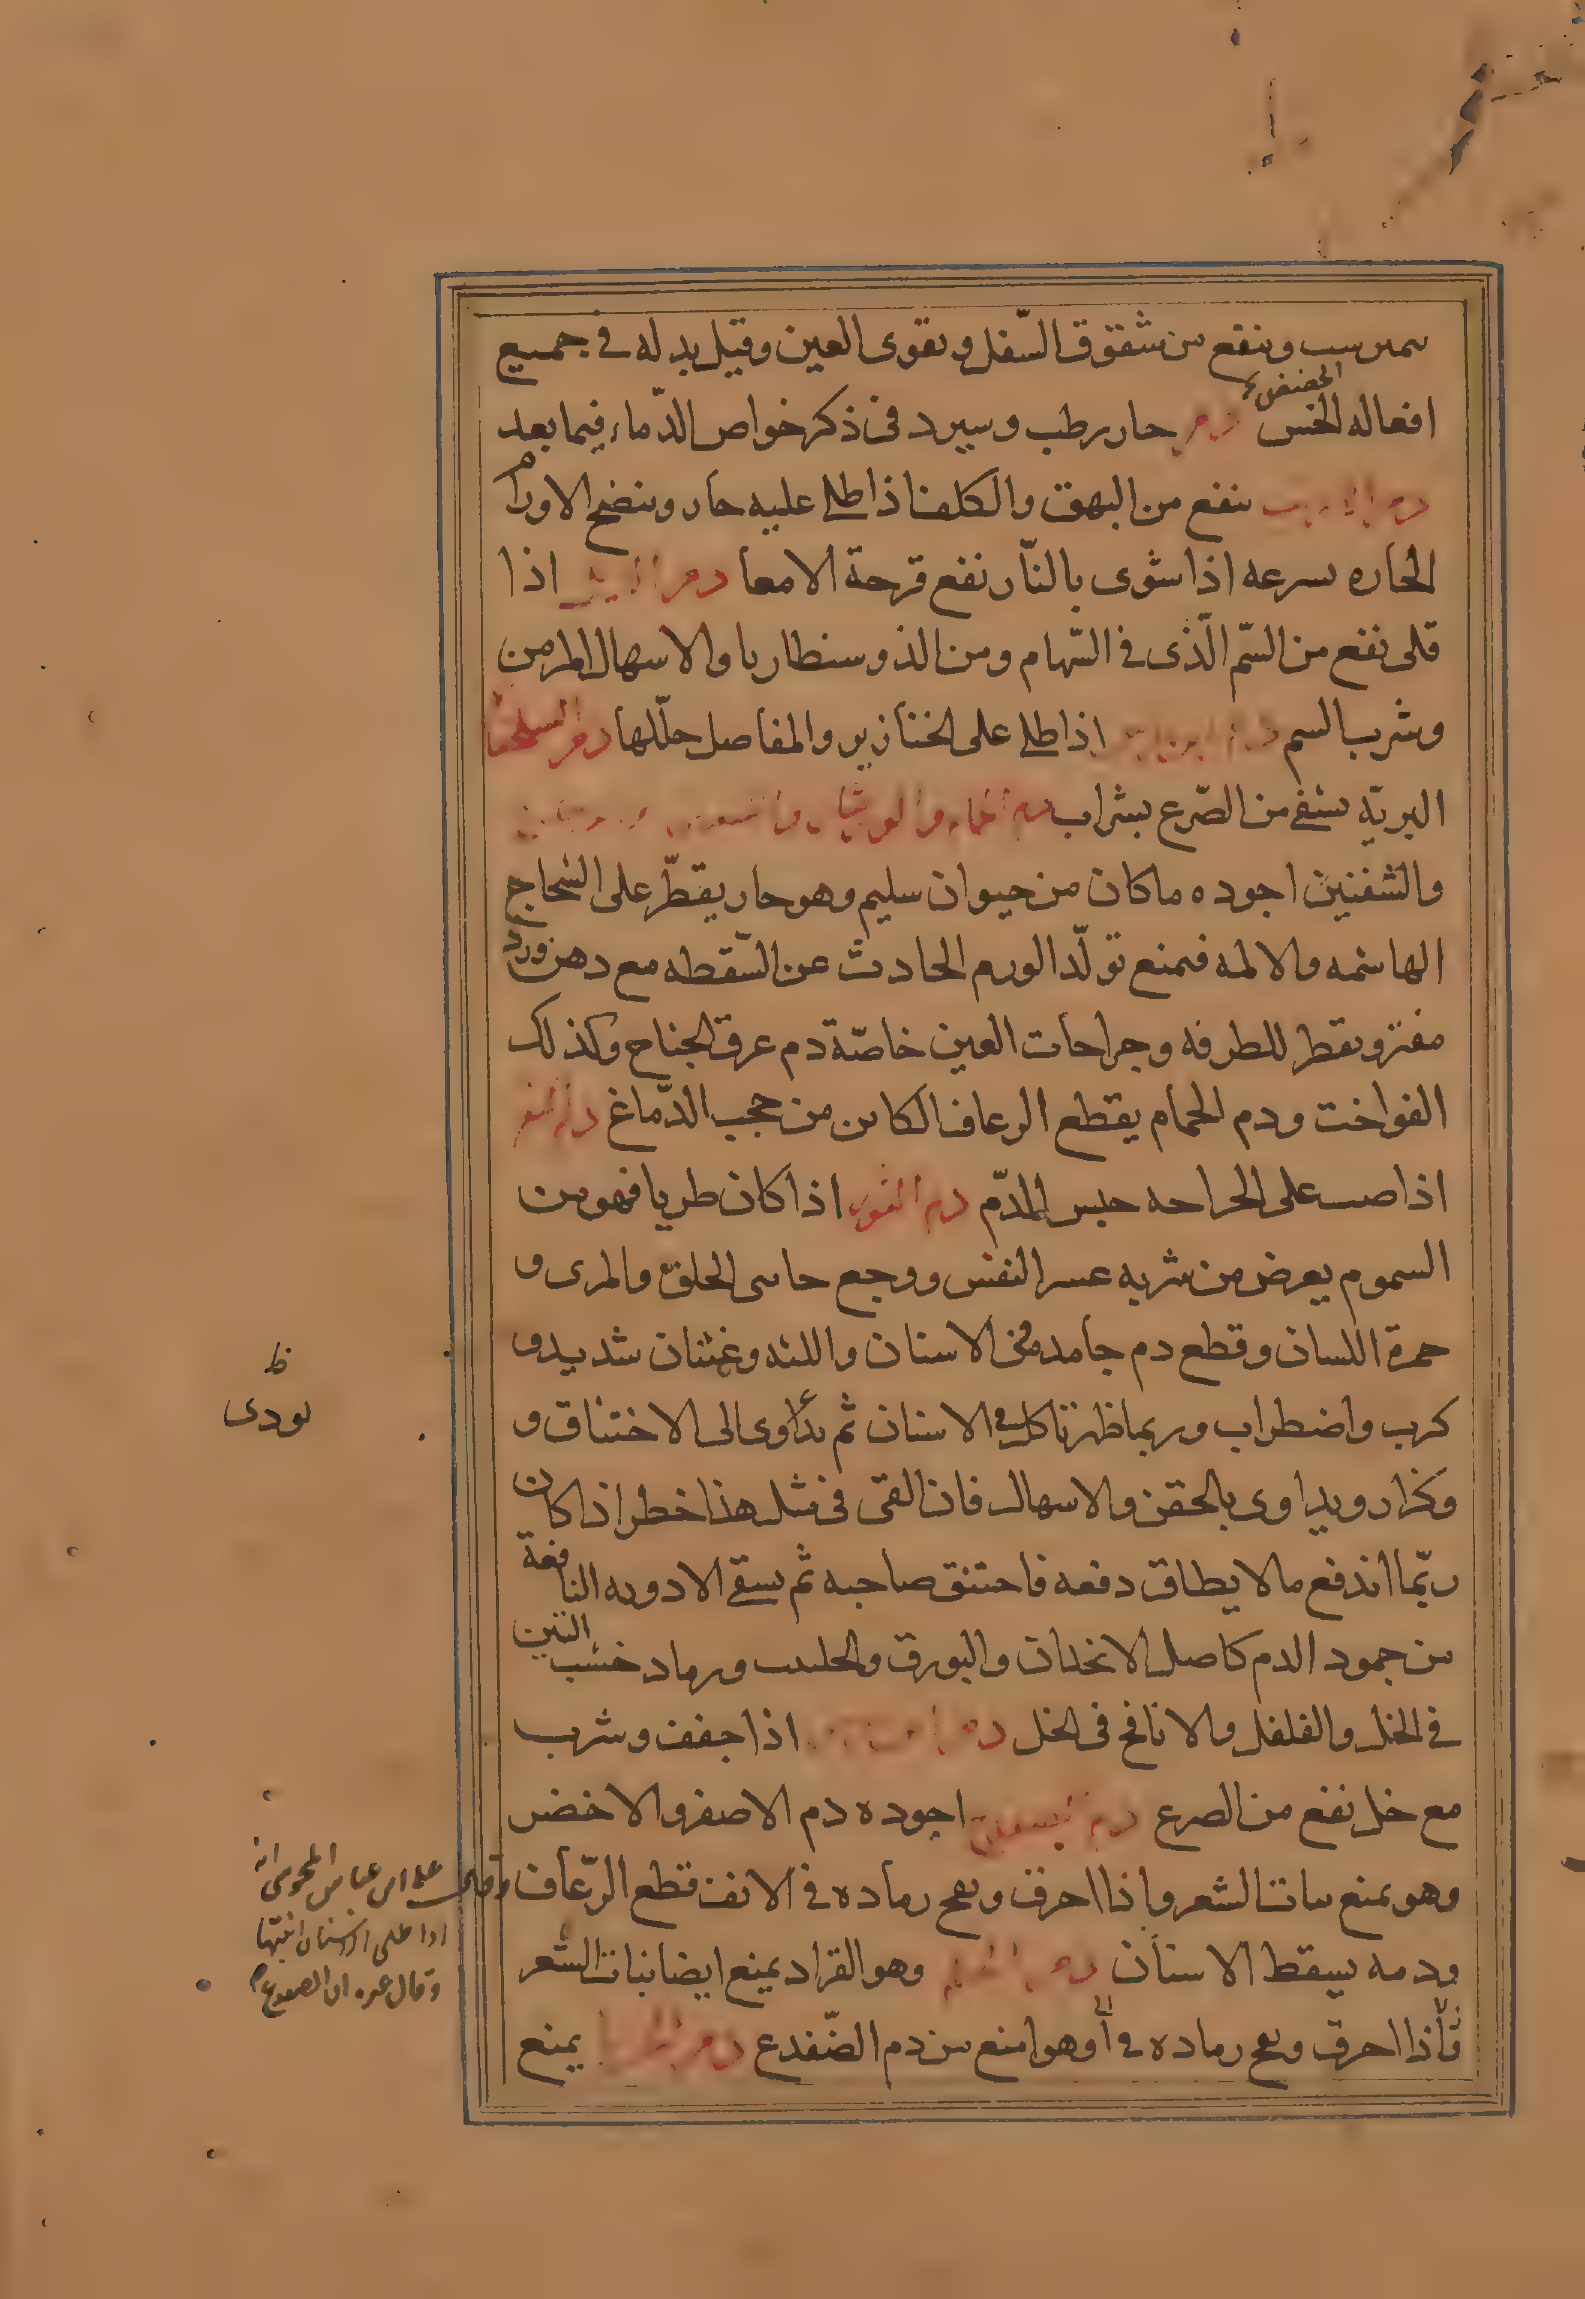 وينفع من شقوق السّفل ويقوى العين وقيل بدله فى جميع
الحضض
افعاله الخس دم حار رطب وسيرد فى ذكر خواص الدّماء فيما بعد
ينفع من البهق والكلف اذا طلى عليه حار وينضج الاورام
الحاره بسرعه اذا شوى بالنّار نفع قرحة الامعا دم اذا
قلى نفع من السّم الّذى فى السّهام ومن الذوسنطاريا والاسهال المزمن
وشرب السم اذا طلى على الخنازير والمفاصل حلّلها دم السلحفا
البريّه يشفى من الصّرع بشراب دم الحمام والورشان
والشفنين اجوده ما كان من حيوان سليم وهو حار يقطّر على الشجاج
الهاشمه والالمه فيمنع تولّد الورم الحادث عن السّقطه مع دهن ورد
مفتر ويقطر للطرفه وجراحات العين خاصّة دم عرق الجناح وكذلك
الفواخت ودم الحمام يقطع الرعاف الكاين من حجب الدّماغ
اذا صب على الجراحه حبس الدّم دم الثور اذا كان طريا فهو من
السموم يعرض من شربه عسر النفس ووجع حاسى الحلق والمرى و
حمرة اللسان وقطع دم جامد فى الاسنان واللثه وغثيان شديد و
كرب واضطراب وربما ظهر تاكل فى الاسنان ثم يداوى الى الاختناق و
وكزاز ويداوى بالحقن والاسهال فان القى فى مثل هذا خطر اذا كان
ربّما اندفع ما لا يطاق دفعه فاختنق صاحبه ثم يسقى الادويه النافعة
من جمود الدم كاصل الانجدان والبورق والحلتيت ورماد خشب التين
فى الخل والفلفل والانافح فى الخل اذا جفف وشرب
مع خل نفع من الصرع دم اجوده دم الاصفر والاخضر
وهو يمنع نبات الشعر واذا احرق ونفخ رماده فى الانف قطع الرّعاف
ودمه يسقط الاسنان دم الحلم وهو القراد يمنع ايضا نبات الشعر
فاذا احرق ونفخ رماده فى وهو امنع من دم الضّفدع دم يمنع
ظ
يودى
وقال على ابن عباس المجوسى انه
اذا طلى الاسنان انبتها
وقال غيره ان الضفدع